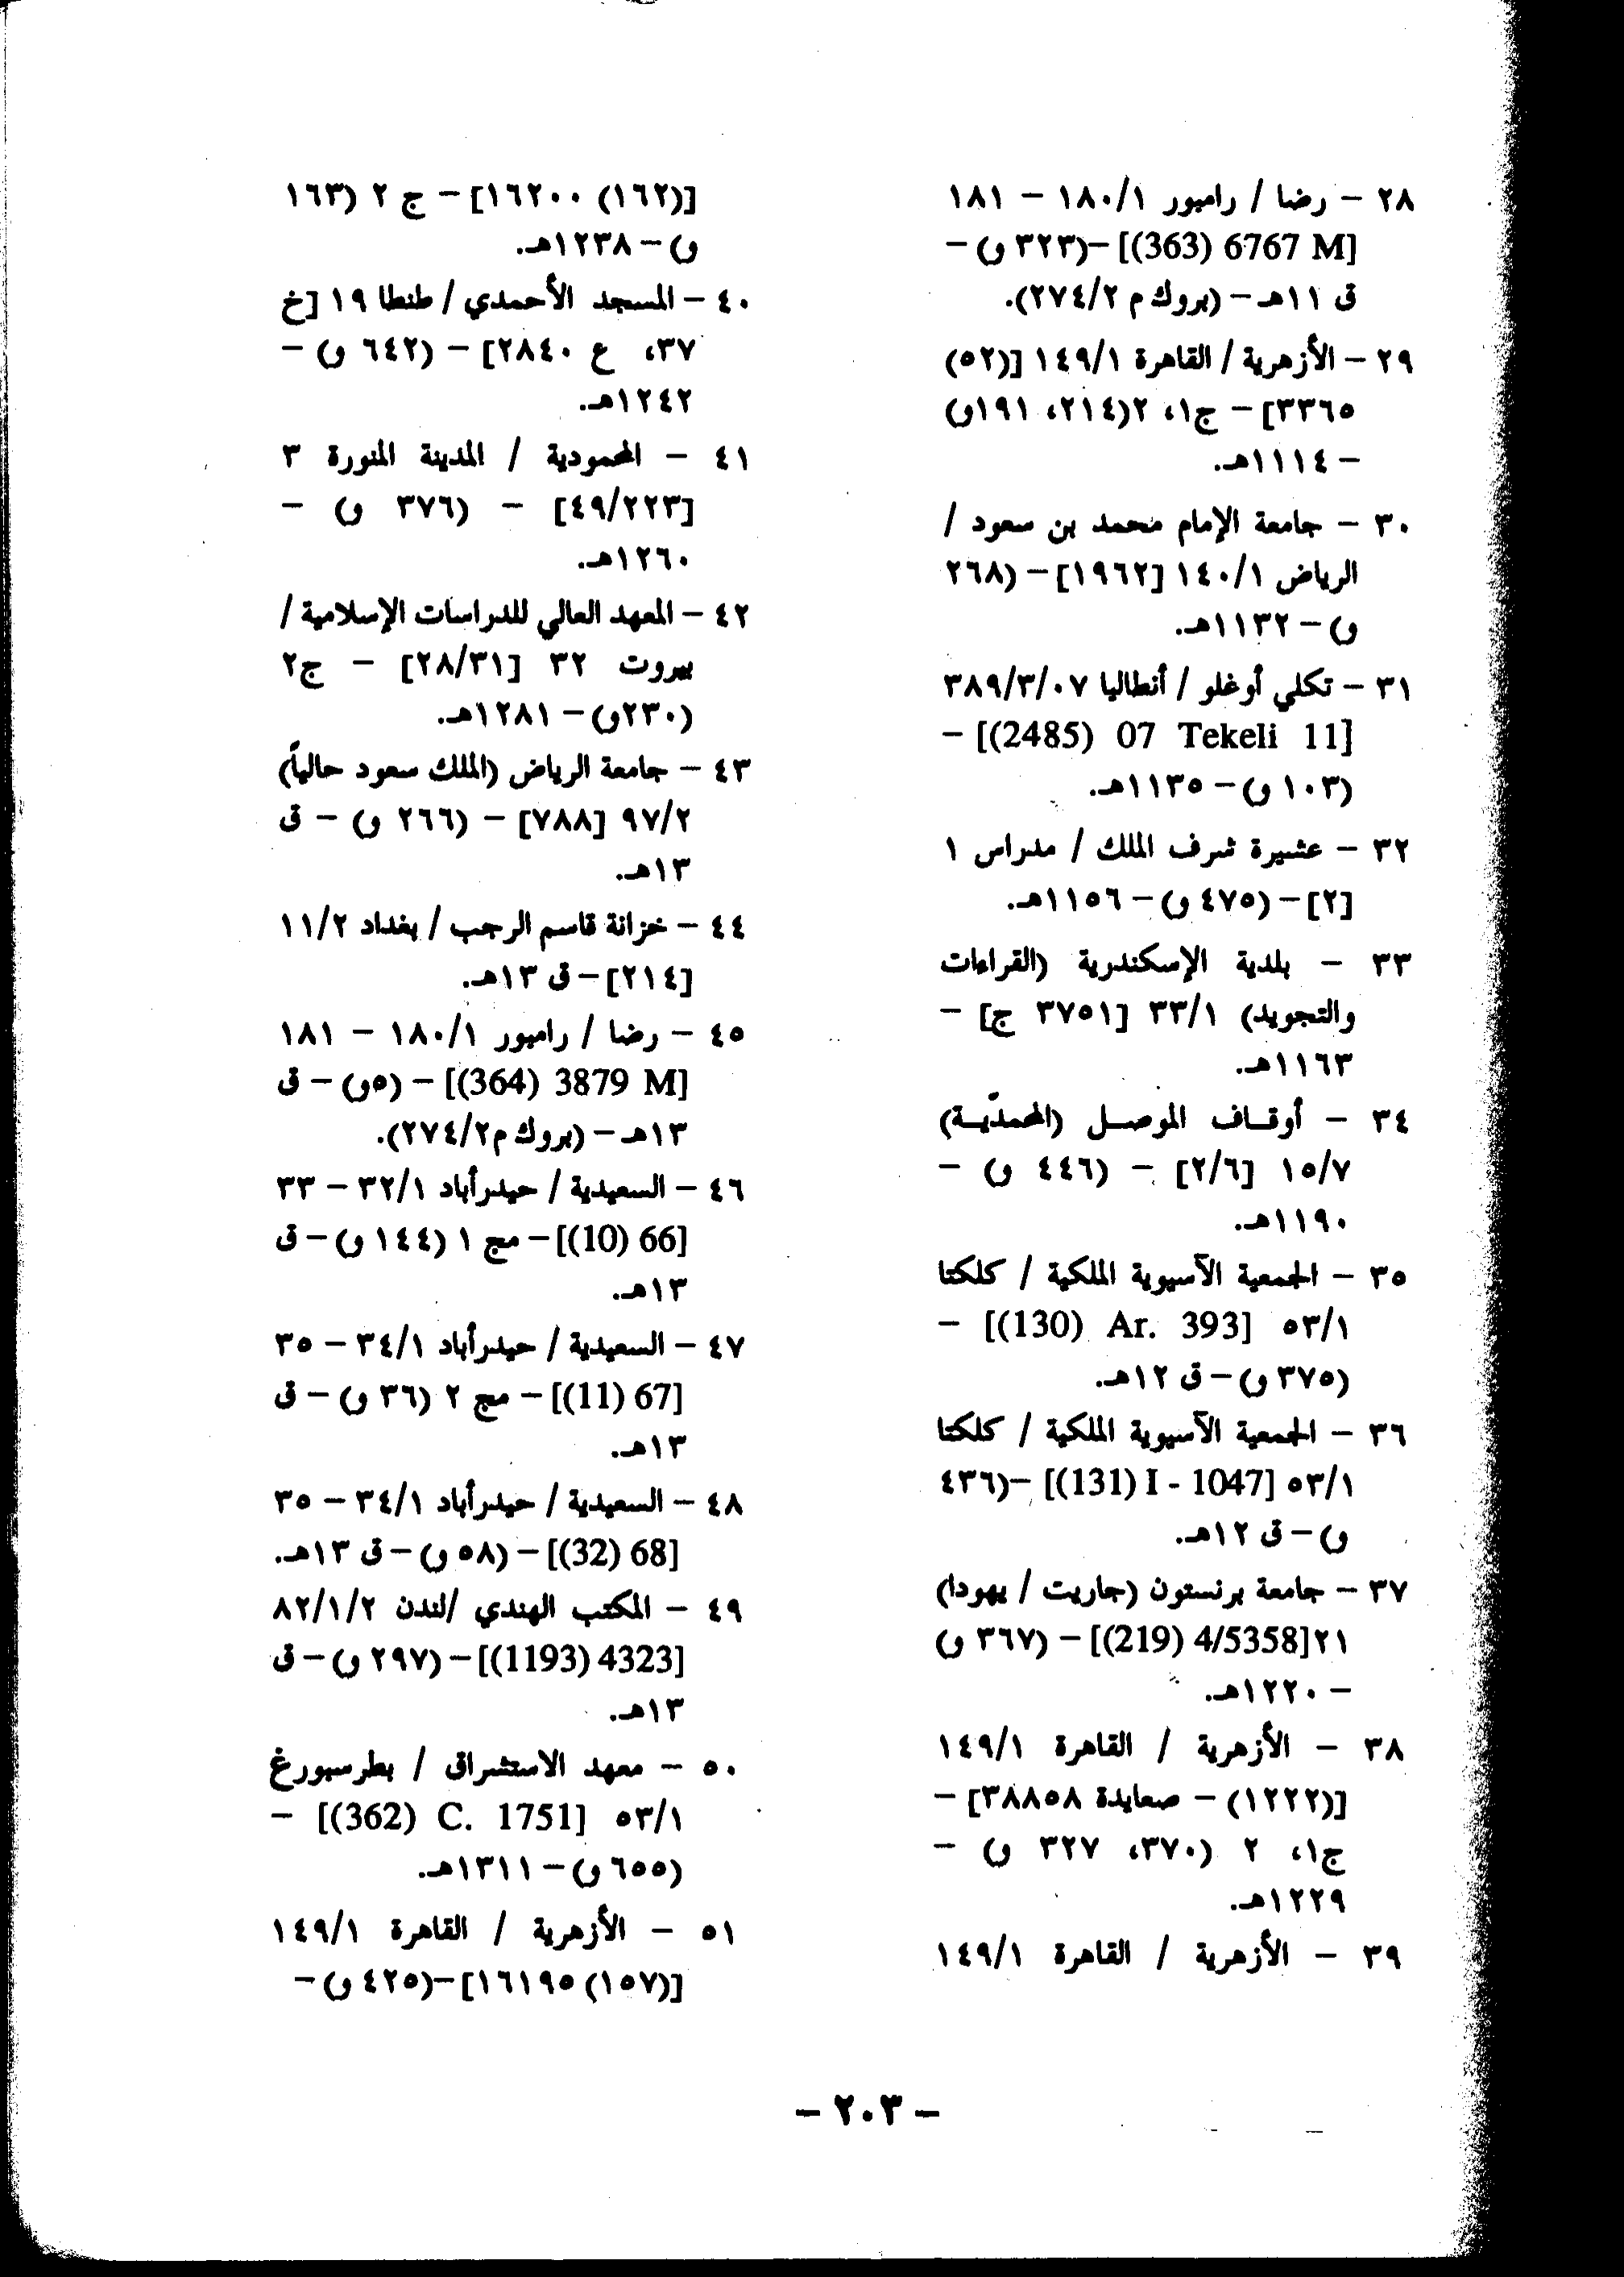 ٢٨ – رضا / رامبور ١/١٨٠ – ١٨١
[(363) 6767 M] –(٣٢٣ و) –
ق ١١هـ – (بروك م ٢/٢٧٤).
٢٩ – الأزهرية / القاهرة ١/١٤٩ [(٥٢)
٣٣٦٥] – ج١، ٢(٢١٤، ١٩١و)
– ١١١٤هـ.
٣٠ – جامعة الإمام محمد بن سعود /
الرياض ١/١٤٠ [١٩٦٢] – (٢٦٨
و) – ١١٣٢هـ.
٣١ – تكلي أوغلو / أنطاليا ٣٨٩/٣/٠٧
[(2485) 07 Tekeli 11] –
(١٠٣ و) – ١١٣٥هـ.
٣٢ – عشيرة شرف الملك / مدراس ١
[٢] – (٤٧٥ و) – ١١٥٦هـ.
٣٣ – بلدية الإسكندرية (القراءات
والتجويد) ١/٣٣ [٣٧٥١ ج] –
١١٦٣هـ.
٣٤ – أوقاف الموصل (المحمديّة)
١٥/٧ [٢/٦] – (٤٤٦ و) –
١١٩٠هـ.
٣٥ – الجمعية الآسيوية الملكية / كلكتا
١/٥٣ [(130) Ar. 393] –
(٣٧٥ و) – ق ١٢هـ.
٣٦ – الجمعية الآسيوية الملكية / كلكتا
١/٥٣ [(131) I - 1047] –(٤٣٦
و) – ق ١٢هـ.
٣٧ – جامعة برنستون (جاريت / يهودا)
٢١[(219) 4/5358] – (٣٦٧ و)
– ١٢٢٠هـ.
٣٨ – الأزهرية / القاهرة ١/١٤٩
[(١٢٢٢) – صعايدة ٣٨٨٥٨] –
ج١، ٢ (٣٧٠، ٣٢٧ و) –
١٢٢٩هـ.
٣٩ – الأزهرية / القاهرة ١/١٤٩
[(١٦٢) ١٦٢٠٠] – ج ٢ (١٦٣
و) – ١٢٣٨هـ.
٤٠ – المسجد الأحمدي / طنطا ١٩ [خ
٣٧، ع ٢٨٤٠] – (٦٤٢ و) –
١٢٤٢هـ.
٤١ – المحمودية / المدينة المنورة ٣
[٤٩/٢٢٣] – (٣٧٦ و) –
١٢٦٠هـ.
٤٢ – المعهد العالي للدراسات الإسلامية /
بيروت ٣٢ [٢٨/٣١] – ج٢
(٢٣٠و) – ١٢٨١هـ.
٤٣ – جامعة الرياض (الملك سعود حالياً)
٩٧/٢ [٧٨٨] – (٢٦٦ و) – ق
١٣هـ.
٤٤ – خزانة قاسم الرجب / بغداد ١١/٢
[٢١٤] – ق ١٣هـ.
٤٥ – رضا / رامبور ١/١٨٠ – ١٨١
[(364) 3879 M] – (٥و) – ق
١٣هـ – (بروك م٢/٢٧٤).
٤٦ – السعيدية / حيدرأباد ١/٣٢ – ٣٣
[(10) 66] – مج ١ (١٤٤ و) – ق
١٣هـ.
٤٧ – السعيدية / حيدرأباد ١/٣٤ – ٣٥
[(11) 67] – مج ٢ (٣٦ و) – ق
١٣هـ.
٤٨ – السعيدية / حيدرأباد ١/٣٤ – ٣٥
[(32) 68] – (٥٨ و) – ق ١٣هـ.
٤٩ – المكتب الهندي /لندن ٨٢/١/٢
[(1193) 4323] – (٢٩٧ و) – ق
١٣هـ.
٥٠ – معهد الاستشراق / بطرسبورغ
١/٥٣ [(362) C. 1751] –
(٦٥٥ و) – ١٣١١هـ.
٥١ – الأزهرية / القاهرة ١/١٤٩
[(١٥٧) ١٦١٩٥] –(٤٢٥ و) –
– ٢٠٣ –